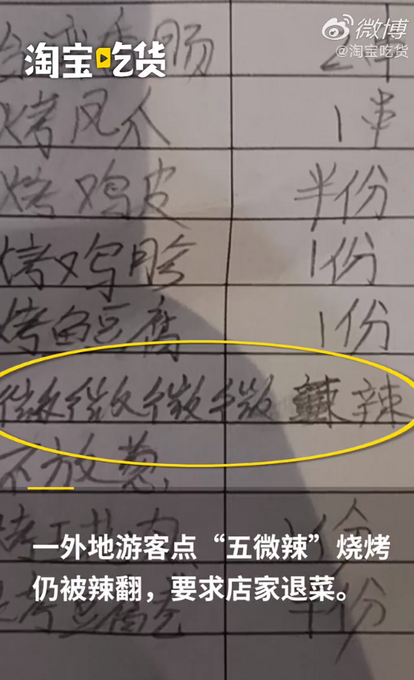 淘宝吃货
微博
@淘宝吃货
肠 2串
烤风 1串
烤鸡皮 半份
烤鸡胗 1份
烤鱼豆腐 1份
微微微微 辣
不放葱
一外地游客点“五微辣”烧烤
仍被辣翻，要求店家退菜。
半份